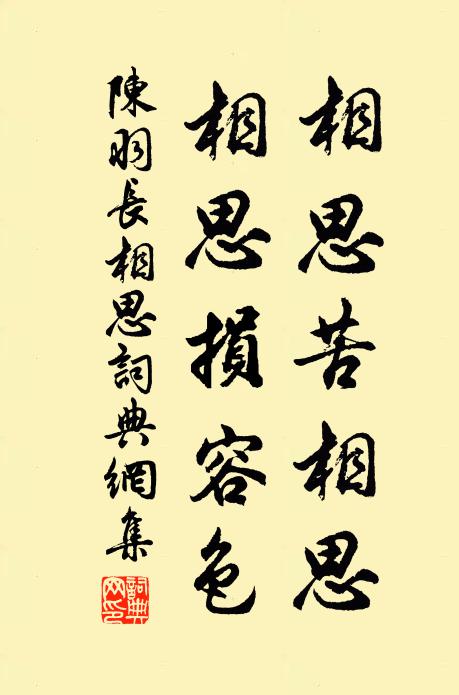 相思苦相思
相思損容色
陳羽長相思詞典網集
詞典網印